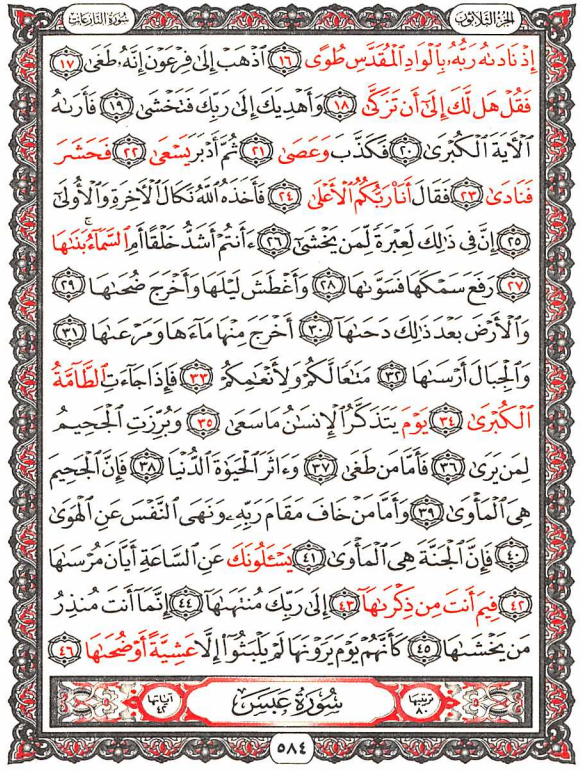 سُورَةُ النَّازِعَاتِ الجُزْءُ الثَّلَاثُونَ
إِذْ نَادَىٰهُ رَبُّهُۥ بِٱلْوَادِ ٱلْمُقَدَّسِ طُوًى ١٦ ٱذْهَبْ إِلَىٰ فِرْعَوْنَ إِنَّهُۥ طَغَىٰ ١٧
فَقُلْ هَل لَّكَ إِلَىٰٓ أَن تَزَكَّىٰ ١٨ وَأَهْدِيَكَ إِلَىٰ رَبِّكَ فَتَخْشَىٰ ١٩ فَأَرَىٰهُ
ٱلْءَايَةَ ٱلْكُبْرَىٰ ٢٠ فَكَذَّبَ وَعَصَىٰ ٢١ ثُمَّ أَدْبَرَ يَسْعَىٰ ٢٢ فَحَشَرَ
فَنَادَىٰ ٢٣ فَقَالَ أَنَا۠ رَبُّكُمُ ٱلْأَعْلَىٰ ٢٤ فَأَخَذَهُ ٱللَّهُ نَكَالَ ٱلْءَاخِرَةِ وَٱلْأُولَىٰٓ
٢٥ إِنَّ فِى ذَٰلِكَ لَعِبْرَةً لِّمَن يَخْشَىٰٓ ٢٦ ءَأَنتُمْ أَشَدُّ خَلْقًا أَمِ ٱلسَّمَآءُ ۚ بَنَىٰهَا
٢٧ رَفَعَ سَمْكَهَا فَسَوَّىٰهَا ٢٨ وَأَغْطَشَ لَيْلَهَا وَأَخْرَجَ ضُحَىٰهَا ٢٩
وَٱلْأَرْضَ بَعْدَ ذَٰلِكَ دَحَىٰهَآ ٣٠ أَخْرَجَ مِنْهَا مَآءَهَا وَمَرْعَىٰهَا ٣١
وَٱلْجِبَالَ أَرْسَىٰهَا ٣٢ مَتَٰعًا لَّكُمْ وَلِأَنْعَٰمِكُمْ ٣٣ فَإِذَا جَآءَتِ ٱلطَّآمَّةُ
ٱلْكُبْرَىٰ ٣٤ يَوْمَ يَتَذَكَّرُ ٱلْإِنسَٰنُ مَا سَعَىٰ ٣٥ وَبُرِّزَتِ ٱلْجَحِيمُ
لِمَن يَرَىٰ ٣٦ فَأَمَّا مَن طَغَىٰ ٣٧ وَءَاثَرَ ٱلْحَيَوٰةَ ٱلدُّنْيَا ٣٨ فَإِنَّ ٱلْجَحِيمَ
هِىَ ٱلْمَأْوَىٰ ٣٩ وَأَمَّا مَنْ خَافَ مَقَامَ رَبِّهِۦ وَنَهَى ٱلنَّفْسَ عَنِ ٱلْهَوَىٰ
٤٠ فَإِنَّ ٱلْجَنَّةَ هِىَ ٱلْمَأْوَىٰ ٤١ يَسْـَٔلُونَكَ عَنِ ٱلسَّاعَةِ أَيَّانَ مُرْسَىٰهَا
٤٢ فِيمَ أَنتَ مِن ذِكْرَىٰهَآ ٤٣ إِلَىٰ رَبِّكَ مُنتَهَىٰهَآ ٤٤ إِنَّمَآ أَنتَ مُنذِرُ
مَن يَخْشَىٰهَا ٤٥ كَأَنَّهُمْ يَوْمَ يَرَوْنَهَا لَمْ يَلْبَثُوٓا۟ إِلَّا عَشِيَّةً أَوْ ضُحَىٰهَا ٤٦
ترتيبها ٨٠ سُورَةُ عَبَسَ آياتها ٤٢
٥٨٤